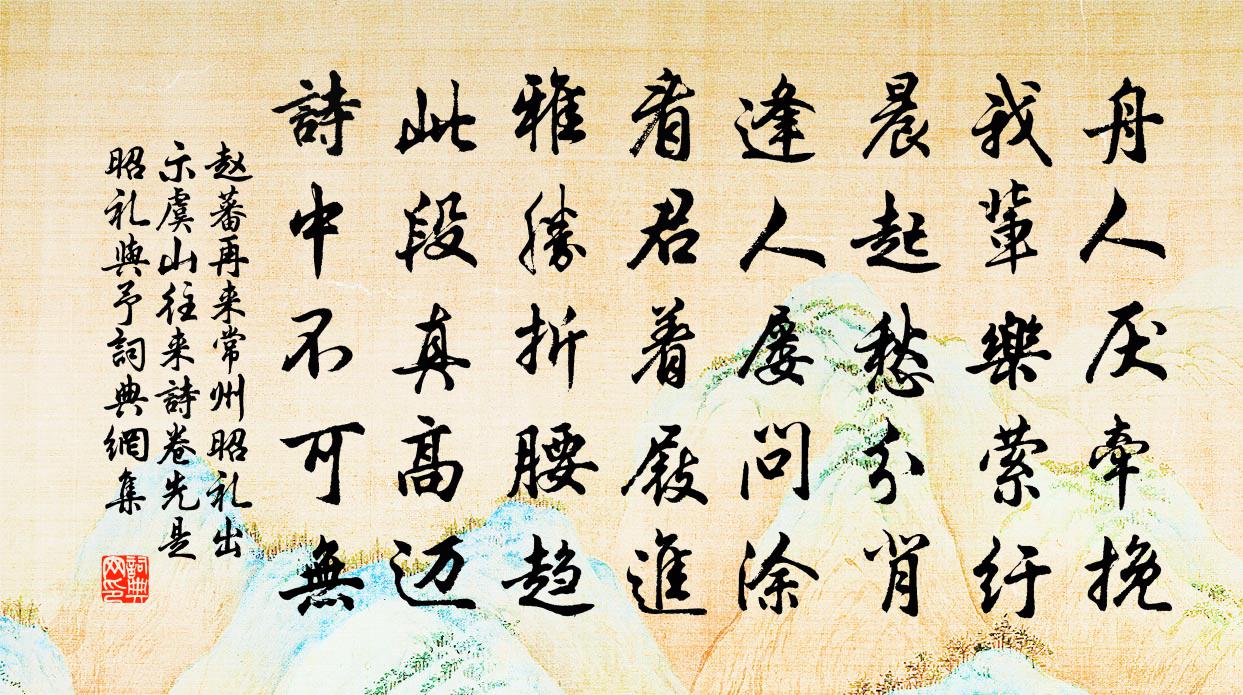 舟人厌牵挽
我辈樂萦纡
晨起愁分背
逢人屡问涂
看君着屐進
雅勝折腰趋
此段真高迈
詩中不可無
赵蕃再来常州昭礼出
示虞山往来詩卷先是
昭礼與予詞典網集
詞典网印